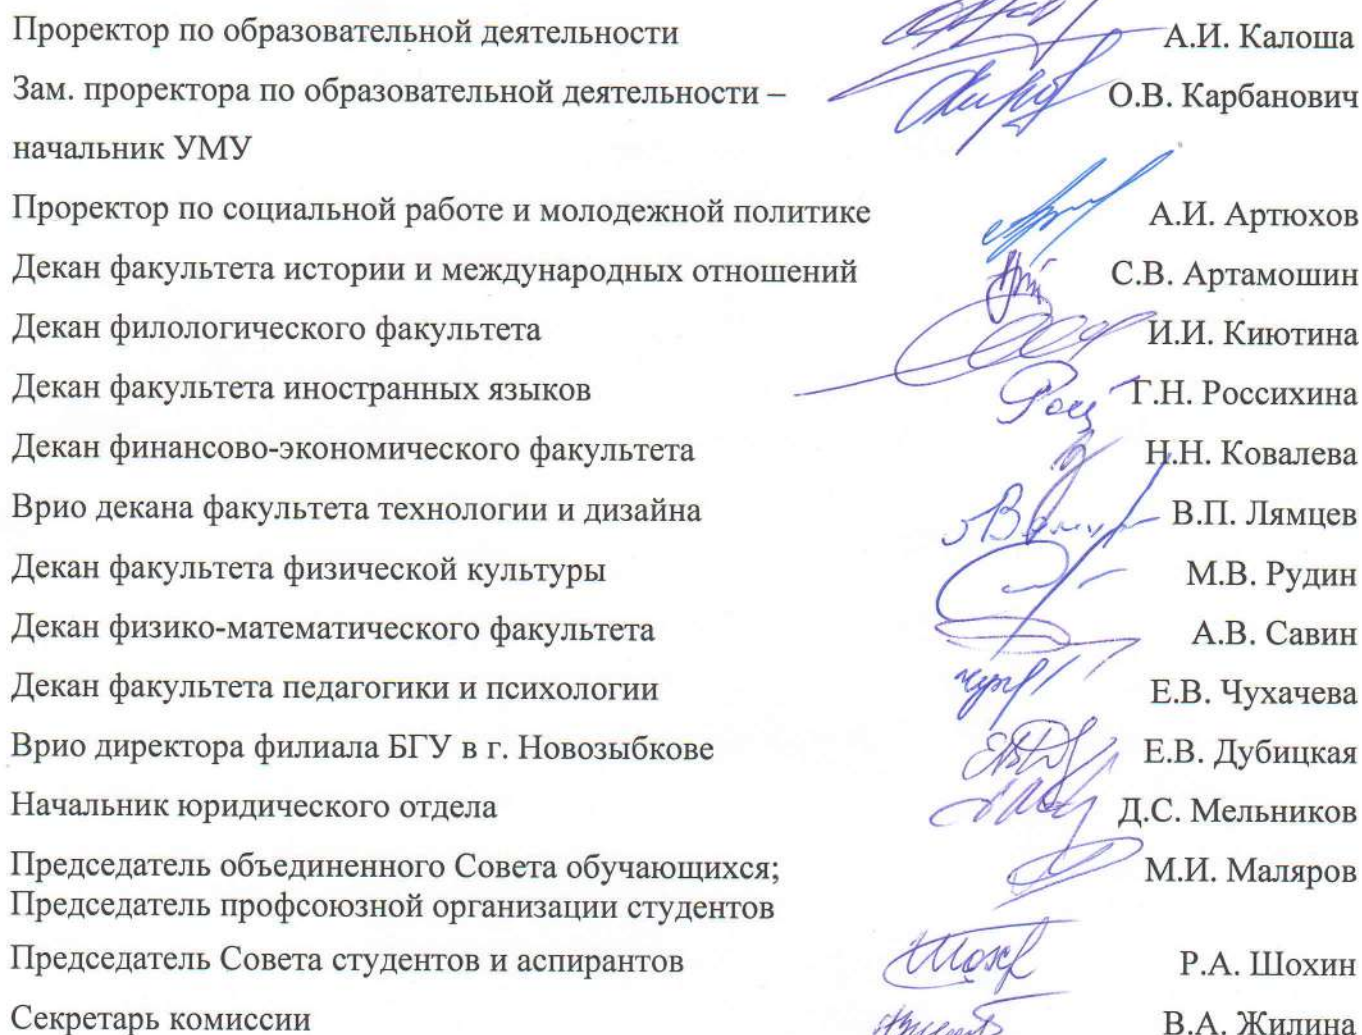 Проректор по образовательной деятельности А.И. Калоша
Зам. проректора по образовательной деятельности – О.В. Карбанович
начальник УМУ
Проректор по социальной работе и молодежной политике А.И. Артюхов
Декан факультета истории и международных отношений С.В. Артамошин
Декан филологического факультета И.И. Киютина
Декан факультета иностранных языков Г.Н. Россихина
Декан финансово-экономического факультета Н.Н. Ковалева
Врио декана факультета технологии и дизайна В.П. Лямцев
Декан факультета физической культуры М.В. Рудин
Декан физико-математического факультета А.В. Савин
Декан факультета педагогики и психологии Е.В. Чухачева
Врио директора филиала БГУ в г. Новозыбкове Е.В. Дубицкая
Начальник юридического отдела Д.С. Мельников
Председатель объединенного Совета обучающихся; М.И. Маляров
Председатель профсоюзной организации студентов
Председатель Совета студентов и аспирантов Р.А. Шохин
Секретарь комиссии В.А. Жилина